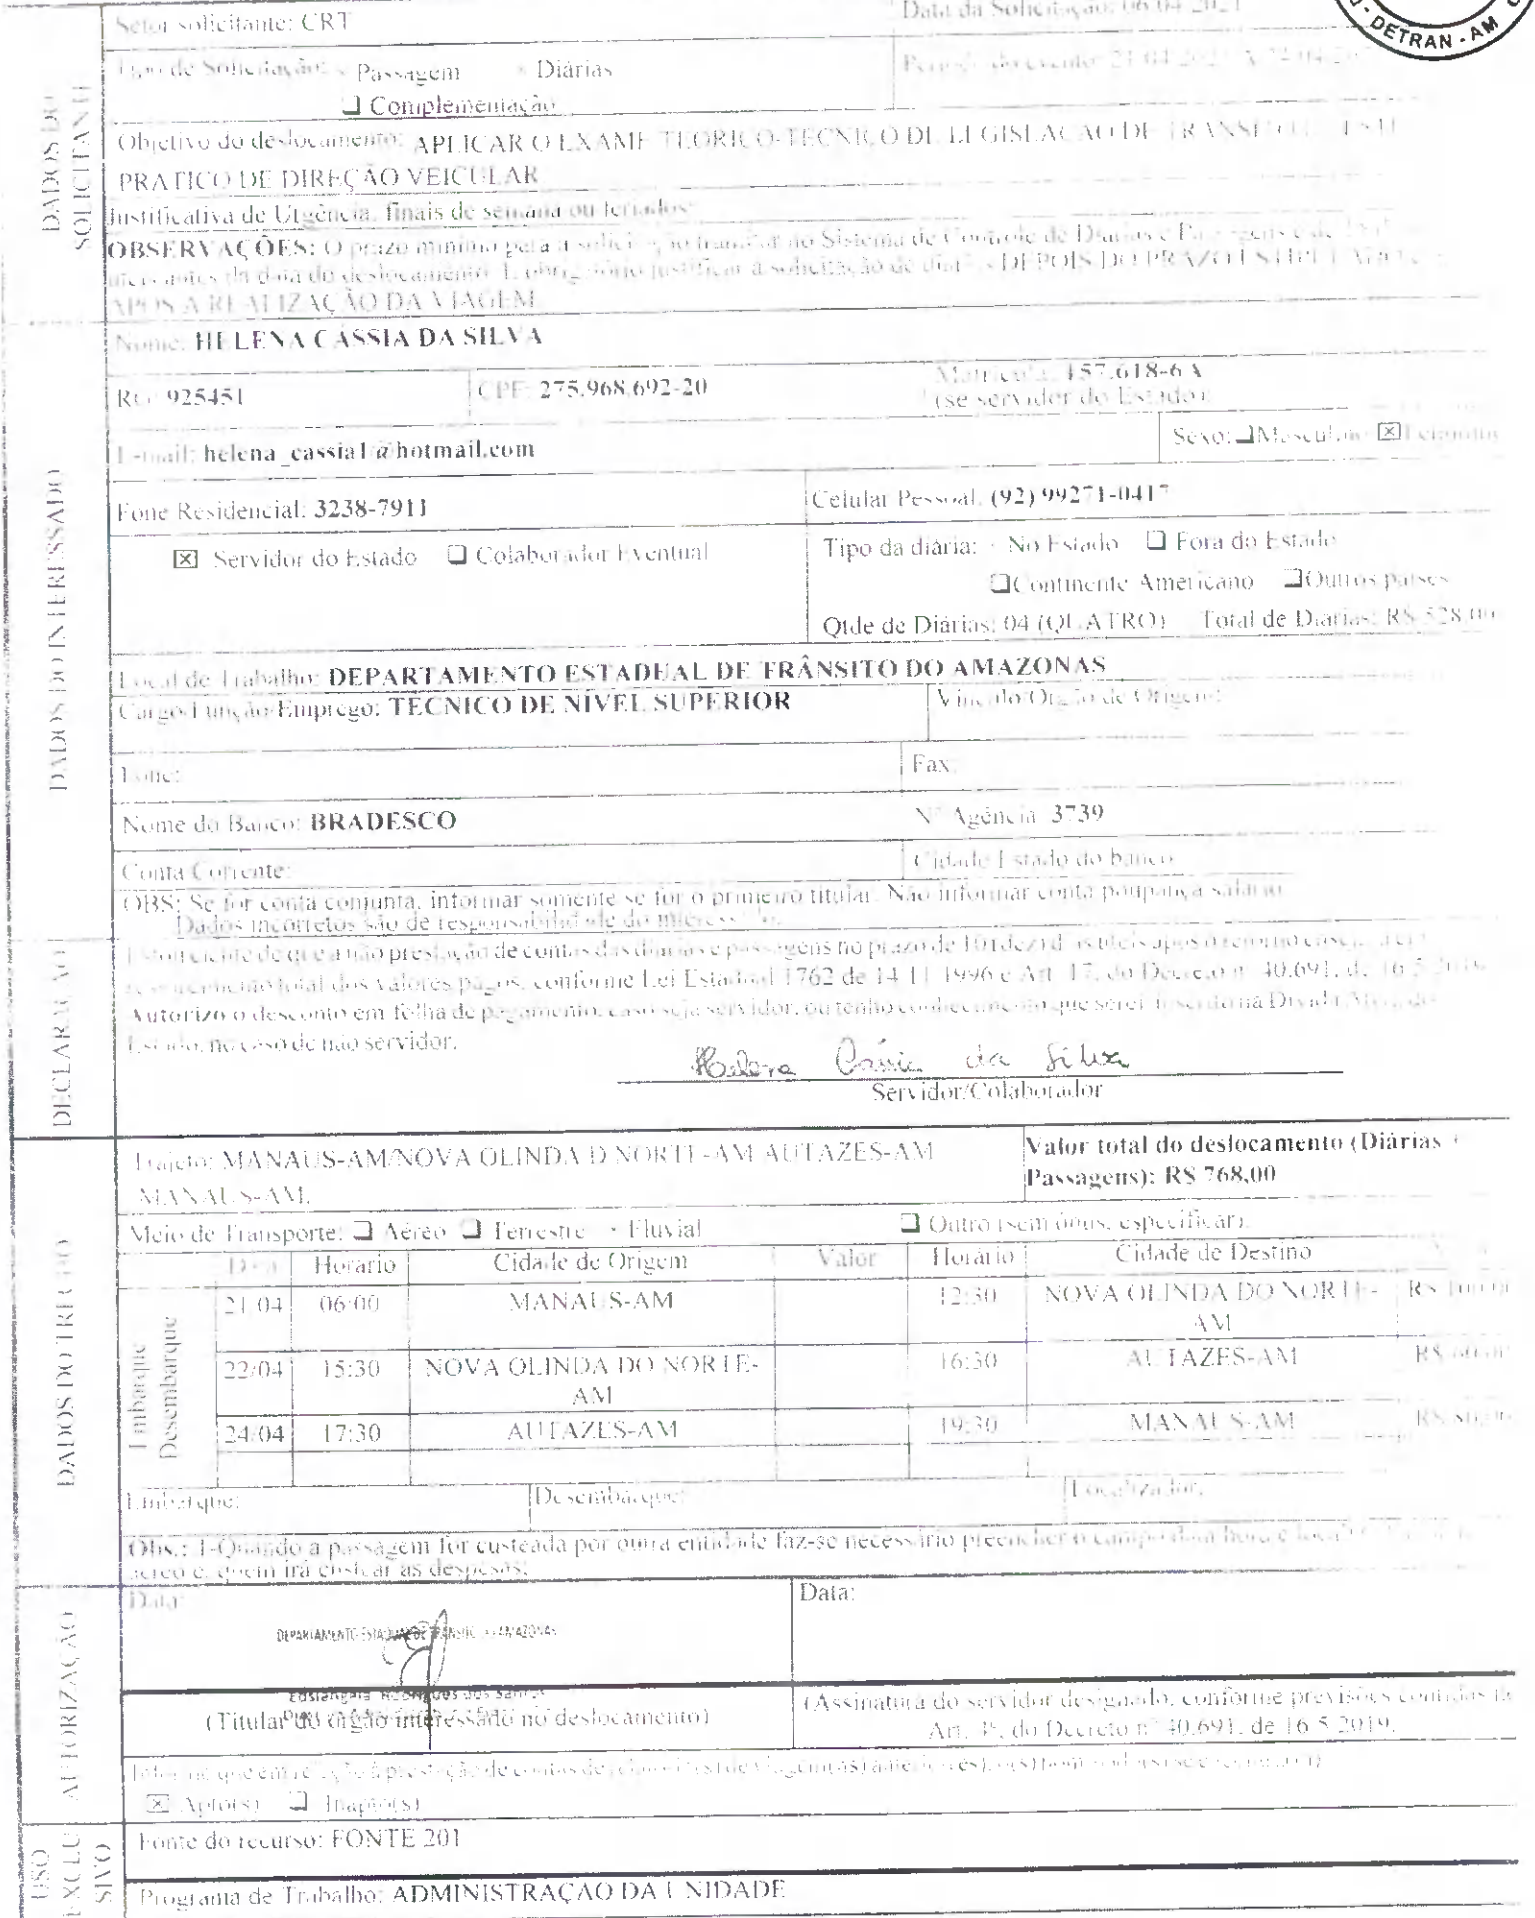 DETRAN - AM
Setor solicitante: CRT
Data da Solicitação: 06.04.2021
DADOS DO
SOLICITANTE
Tipo de Solicitação: Passagem Diárias
Complementação
Período do evento: 21.04.2021 A 24.04
Objetivo do deslocamento: APLICAR O EXAME TEÓRICO-TÉCNICO DE LEGISLAÇÃO DE TRANSITO
PRATICO DE DIREÇÃO VEICULAR
Justificativa de Urgência, finais de semana ou feriados:
OBSERVAÇÕES: O prazo mínimo para a solicitação tramitar no Sistema de Controle de Diárias e Passagens é de
úteis antes da data do deslocamento. É obrigatório justificar a solicitação de diárias DEPOIS DO PRAZO ESTIPULADO
APÓS A REALIZAÇÃO DA VIAGEM
DADOS DO INTERESSADO
Nome: HELENA CÁSSIA DA SILVA
RG: 925451
CPF: 275.968.692-20
Matrícula: 157.618-6 A
(se servidor do Estado):
E-mail: helena_cassia1@hotmail.com
Sexo: Masculino ☒ Feminino
Fone Residencial: 3238-7911
Celular Pessoal: (92) 99271-0417
☒ Servidor do Estado ❑ Colaborador Eventual
Tipo da diária: No Estado ❑ Fora do Estado
❑ Continente Americano ❑ Outros países
Qtde de Diárias: 04 (QUATRO) Total de Diárias: R$ 528,00
Local de Trabalho: DEPARTAMENTO ESTADUAL DE TRÂNSITO DO AMAZONAS
Cargo/Função/Emprego: TÉCNICO DE NÍVEL SUPERIOR
Vínculo/Órgão de Origem:
Fone:
Fax:
Nome do Banco: BRADESCO
Nº Agência: 3739
Conta Corrente:
Cidade/Estado do banco
OBS: Se for conta conjunta, informar somente se for o primeiro titular. Não informar conta poupança/salário
Dados incorretos são de responsabilidade do interessado.
DECLARAÇÃO
Estou ciente de que a não prestação de contas das diárias e passagens no prazo de 10 (dez) dias úteis após o retorno enseja
ressarcimento total dos valores pagos, conforme Lei Estadual 1762 de 14.11.1996 e Art. 17, do Decreto nº 40.691, de 16.5.2019.
Autorizo o desconto em folha de pagamento, caso seja servidor, ou tenho conhecimento que serei inscrito na Dívida Ativa do
Estado, no caso de não servidor.
Helena Cássia da Silva
Servidor/Colaborador
DADOS DO TRECHO
Trajeto: MANAUS-AM/NOVA OLINDA D NORTE-AM AUTAZES-AM
MANAUS-AM.
Valor total do deslocamento (Diárias +
Passagens): R$ 768,00
Meio de Transporte: ❑ Aéreo ❑ Terrestre Fluvial ❑ Outro (sem ônus, especificar):
Data Horário Cidade de Origem Valor Horário Cidade de Destino
Embarque
Desembarque
21/04 06:00 MANAUS-AM 12:30 NOVA OLINDA DO NORTE-AM R$ 100,00
22/04 15:30 NOVA OLINDA DO NORTE-AM 16:30 AUTAZES-AM R$ 60,00
24/04 17:30 AUTAZES-AM 19:30 MANAUS-AM R$ 80,00
Embarque: Desembarque: Localizador:
Obs.: 1-Quando a passagem for custeada por outra entidade faz-se necessário preencher o campo data hora e local
aéreo e, quem irá custear as despesas;
AUTORIZAÇÃO
Data:
Data:
DEPARTAMENTO ESTADUAL DE TRÂNSITO DO AMAZONAS
Rodrigues dos Santos
(Titular do órgão interessado no deslocamento)
(Assinatura do servidor designado, conforme previsões contidas
Art. 3º, do Decreto nº 40.691, de 16.5.2019.
☒ Apto(s) ❑ Inapto(s)
USO
EXCLU
SIVO
Fonte do recurso: FONTE 201
Programa de Trabalho: ADMINISTRAÇÃO DA UNIDADE